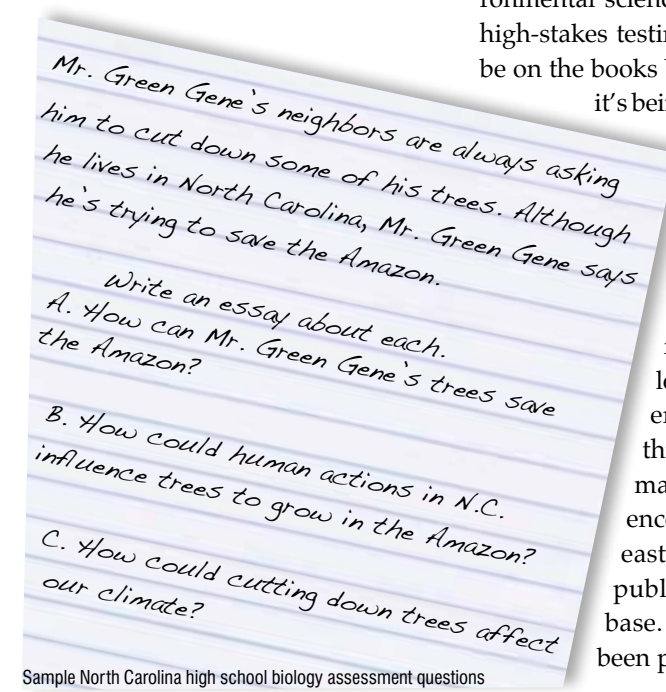 ronmental scienc
high-stakes testin
be on the books b
it's bein
Mr. Green Gene's neighbors are always asking
him to cut down some of his trees. Although
he lives in North Carolina, Mr. Green Gene says
he's trying to save the Amazon.
Write an essay about each.
A. How can Mr. Green Gene's trees save
the Amazon?
B. How could human actions in N.C.
influence trees to grow in the Amazon?
C. How could cutting down trees affect
our climate?
le
en
th
ma
ence
east
publ
base.
been p
Sample North Carolina high school biology assessment questions